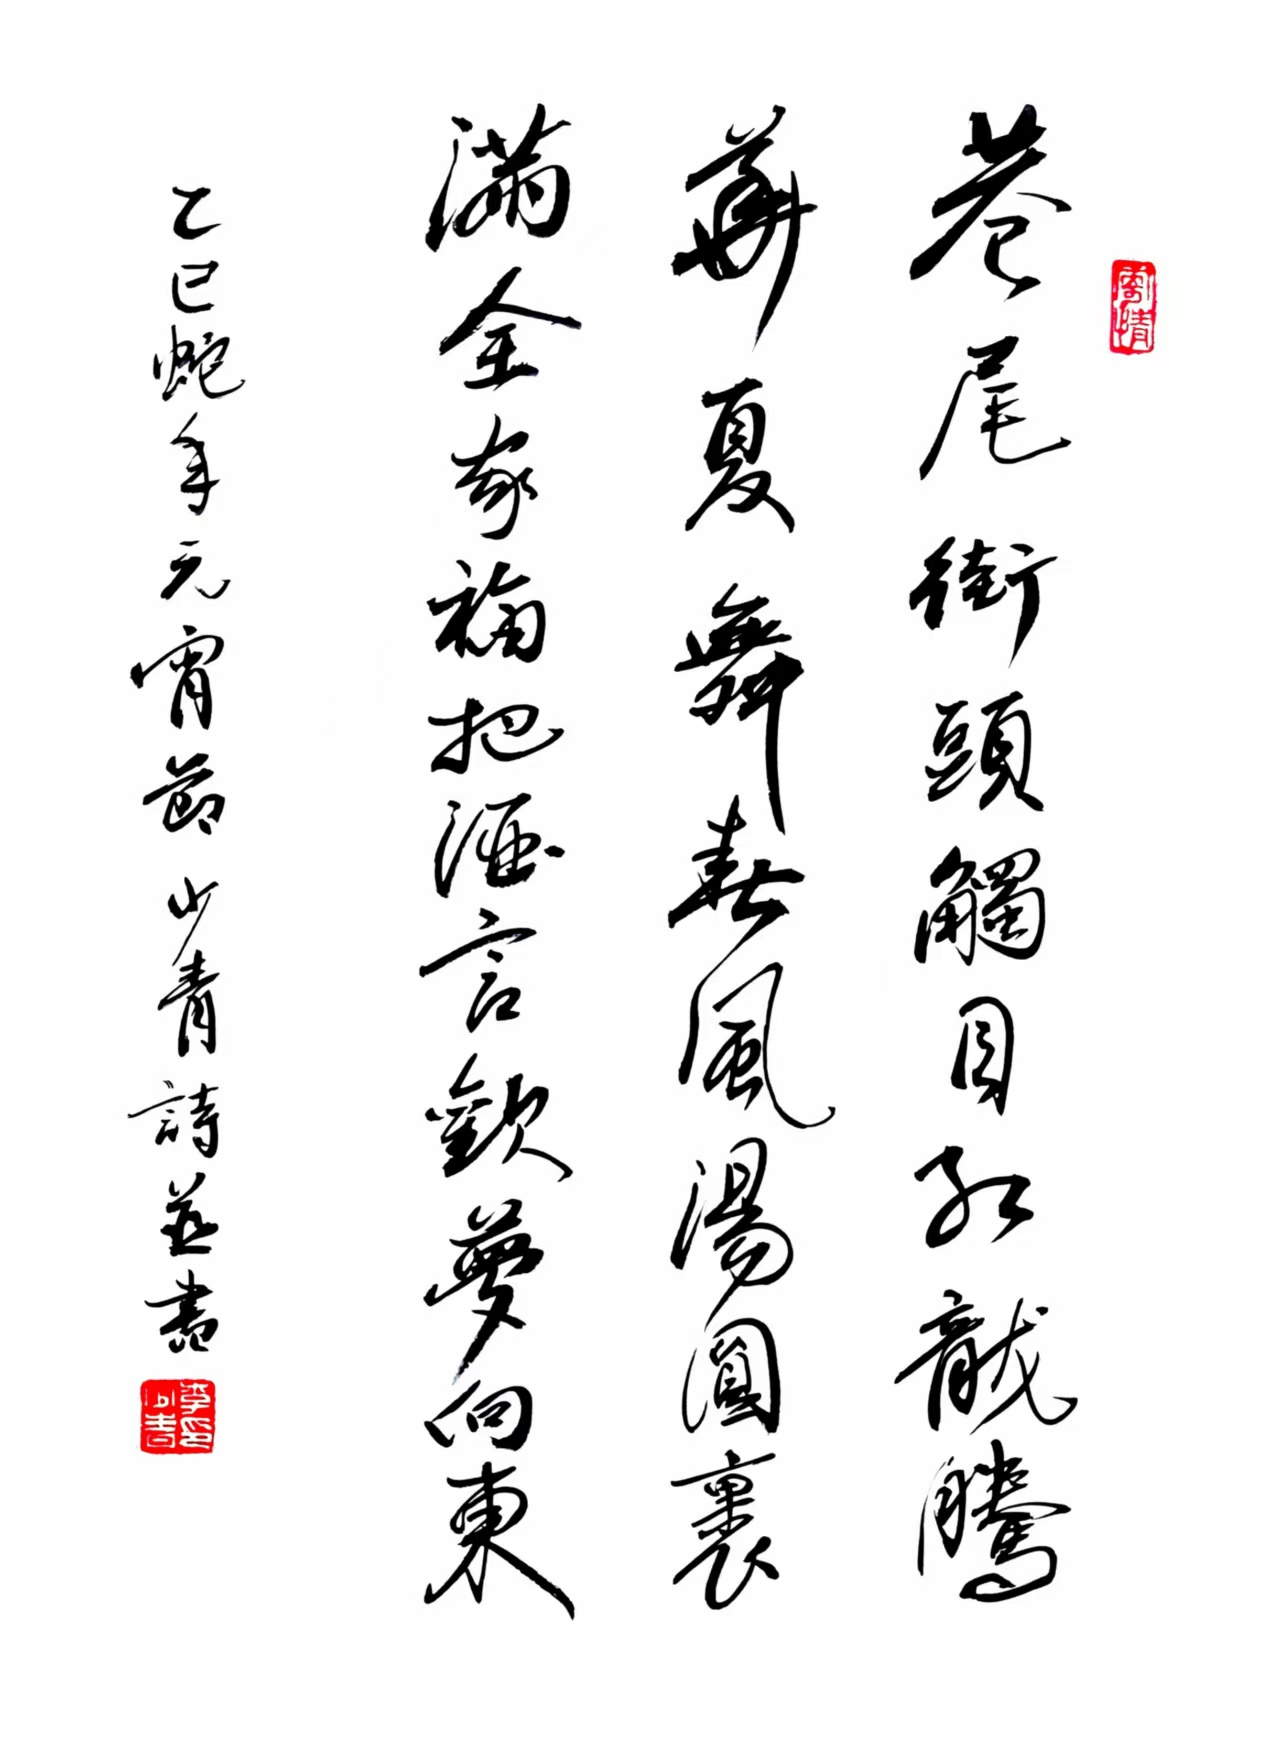 寄情
巷尾街頭觸目紅龍騰
華夏舞春風湯圓裏
滿全家福把酒言歡夢向東
乙巳蛇年元宵節少青詩並書
李少青印